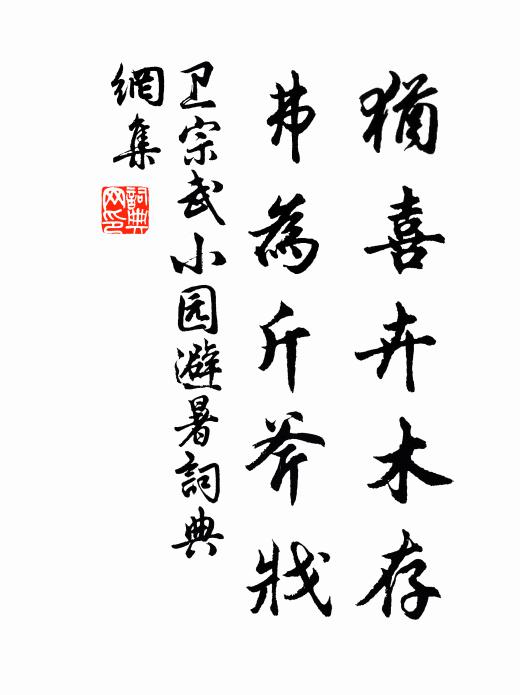 猶喜卉木存
弗為斤斧戕
卫宗武小园避暑詞典
網集
詞典
网印